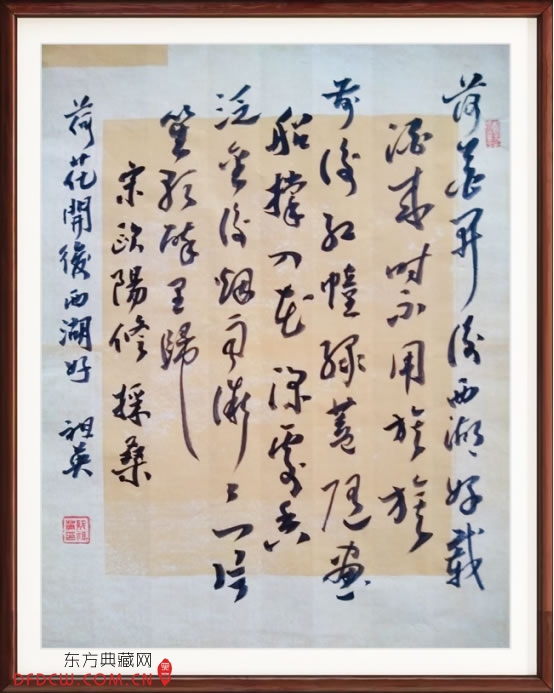 荷花开後西湖好载
酒来时不用旌旗
前後红幢绿蓋随画
船撑入花深處香
泛金卮烟雨微〻一片
笙歌醉里歸
宋欧陽修採桑
荷花開後西湖好 祖英
东方典藏网
DFDCW.COM.CN